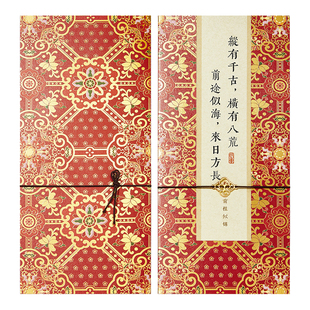 縱有千古，橫有八荒
前途似海，來日方長